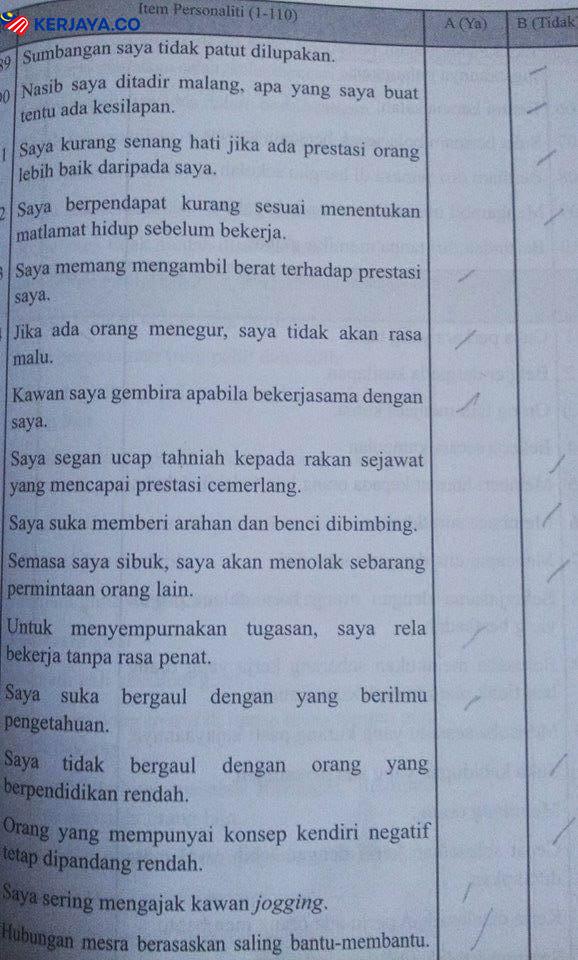 Item Personaliti (1-110) A (Ya) B (Tidak
KERJAYA.CO
89 Sumbangan saya tidak patut dilupakan.
Nasib saya ditadir malang, apa yang saya buat
tentu ada kesilapan.
Saya kurang senang hati jika ada prestasi orang
lebih baik daripada saya.
Saya berpendapat kurang sesuai menentukan
matlamat hidup sebelum bekerja.
Saya memang mengambil berat terhadap prestasi
saya.
Jika ada orang menegur, saya tidak akan rasa
malu.
Kawan saya gembira apabila bekerjasama dengan
saya.
Saya segan ucap tahniah kepada rakan sejawat
yang mencapai prestasi cemerlang.
Saya suka memberi arahan dan benci dibimbing.
Semasa saya sibuk, saya akan menolak sebarang
permintaan orang lain.
Untuk menyempurnakan tugasan, saya rela
bekerja tanpa rasa penat.
Saya suka bergaul dengan yang berilmu
pengetahuan.
Saya tidak bergaul dengan orang yang
berpendidikan rendah.
Orang yang mempunyai konsep kendiri negatif
tetap dipandang rendah.
Saya sering mengajak kawan jogging.
Hubungan mesra berasaskan saling bantu-membantu.